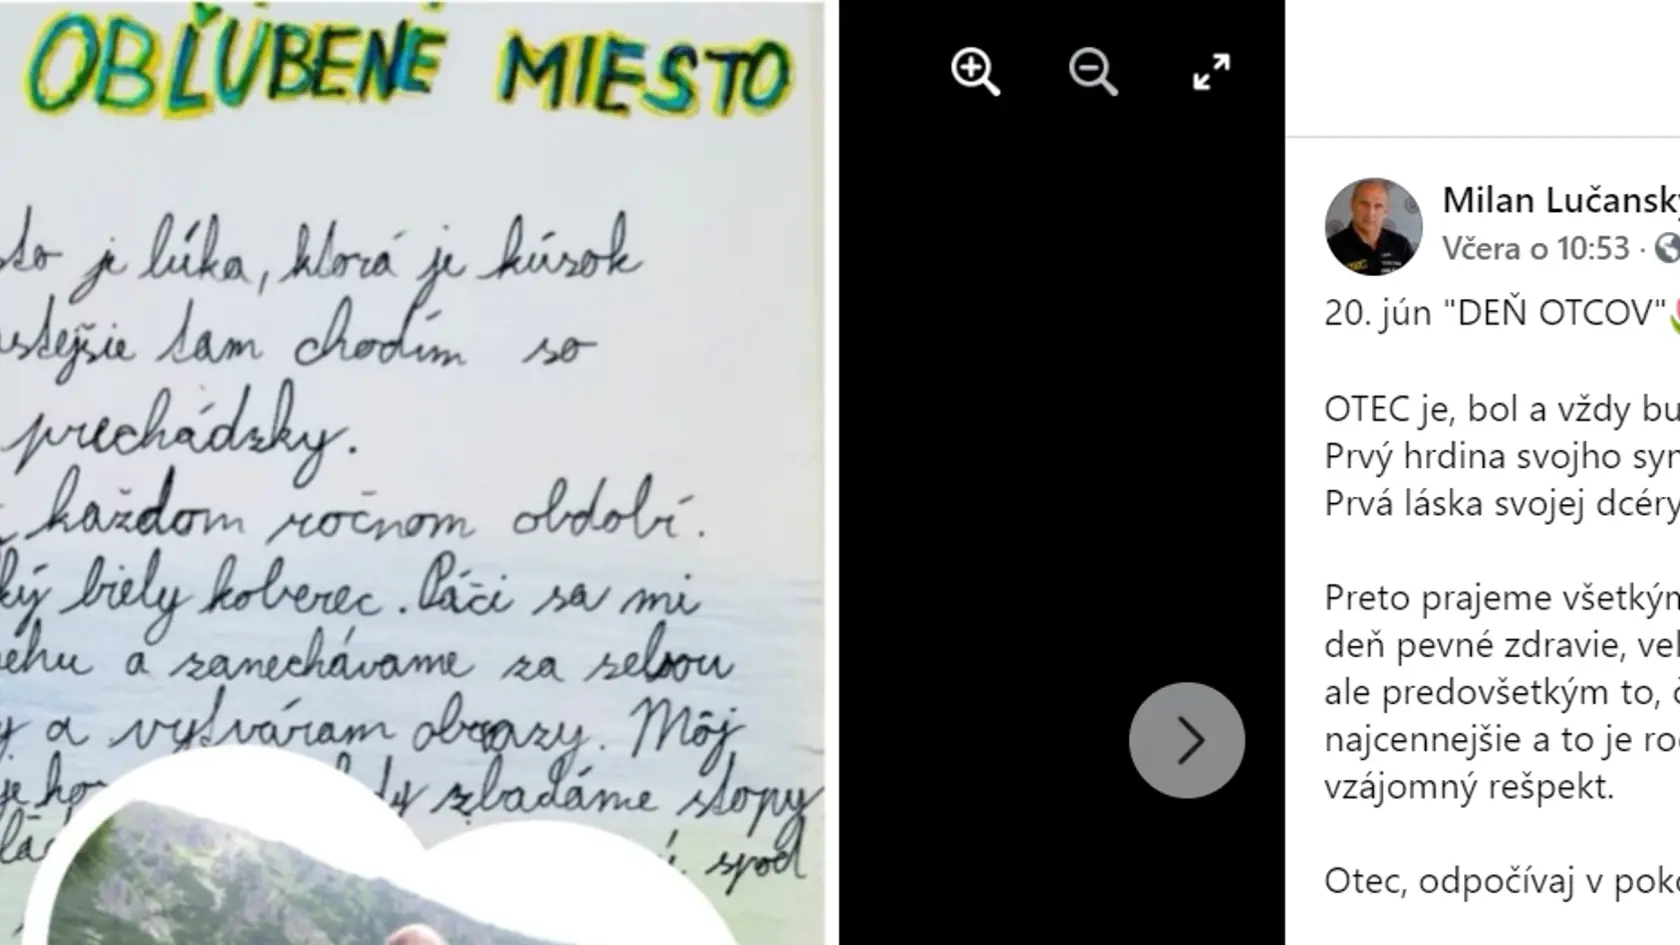 OBĽÚBENÉ MIESTO
sto je lúka, ktorá je kúsok
astejšie tam chodím so
prechádzky.
každom ročnom období.
ký biely koberec. Páči sa mi
behu a zanechávame za sebou
y a vytváram obrazy. Môj
je hor dy zbadáme stopy
spod
Milan Lučansky
Včera o 10:53 ·
20. jún "DEŇ OTCOV"
OTEC je, bol a vždy bu
Prvý hrdina svojho syn
Prvá láska svojej dcéry
Preto prajeme všetkým
deň pevné zdravie, vel
ale predovšetkým to, č
najcennejšie a to je ro
vzájomný rešpekt.
Otec, odpočívaj v poko